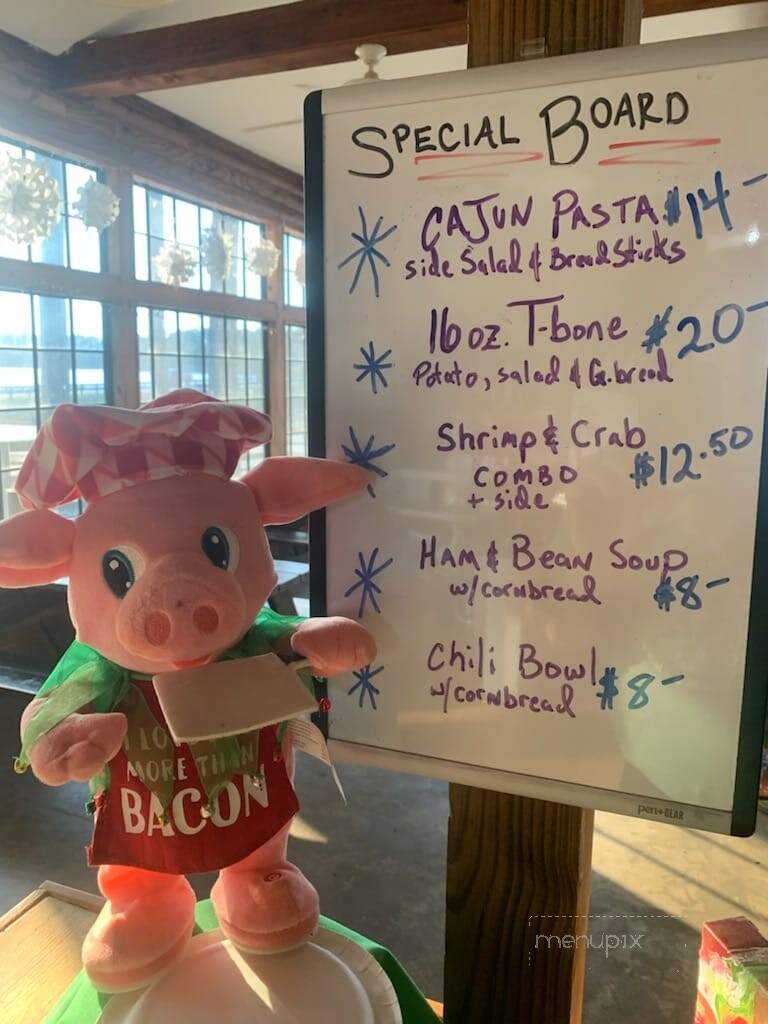 SPECIAL BOARD
CAJUN PASTA $14-
side Salad & Bread Sticks
16 oz. T-bone $20-
Potato, salad & G.bread
Shrimp & Crab
COMBO $12.50
+ side
HAM & BEAN SOUP
w/cornbread $8-
Chili Bowl
w/cornbread $8-
pen+GEAR
I LO
MORE THAN
BACON
menupix